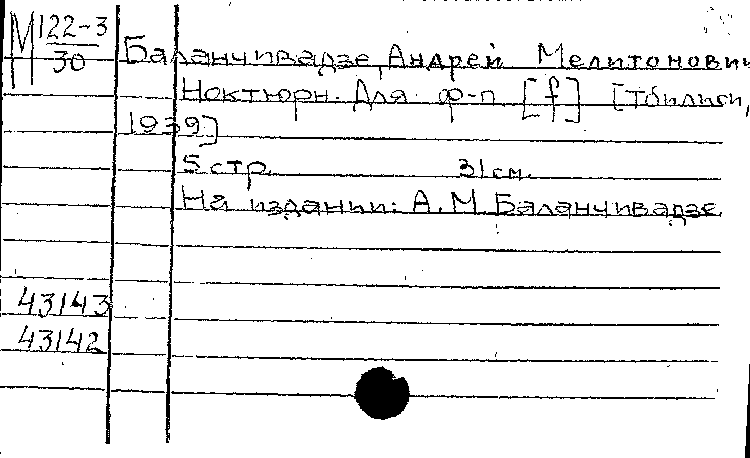 М 122-3
30
Баланчивадзе, Андрей Мелитонович
Ноктюрн. Для ф-п [f] [Тбилиси,
1939]
5 стр. 31 см.
На издании: А.М Баланчивадзе.
43143
43142